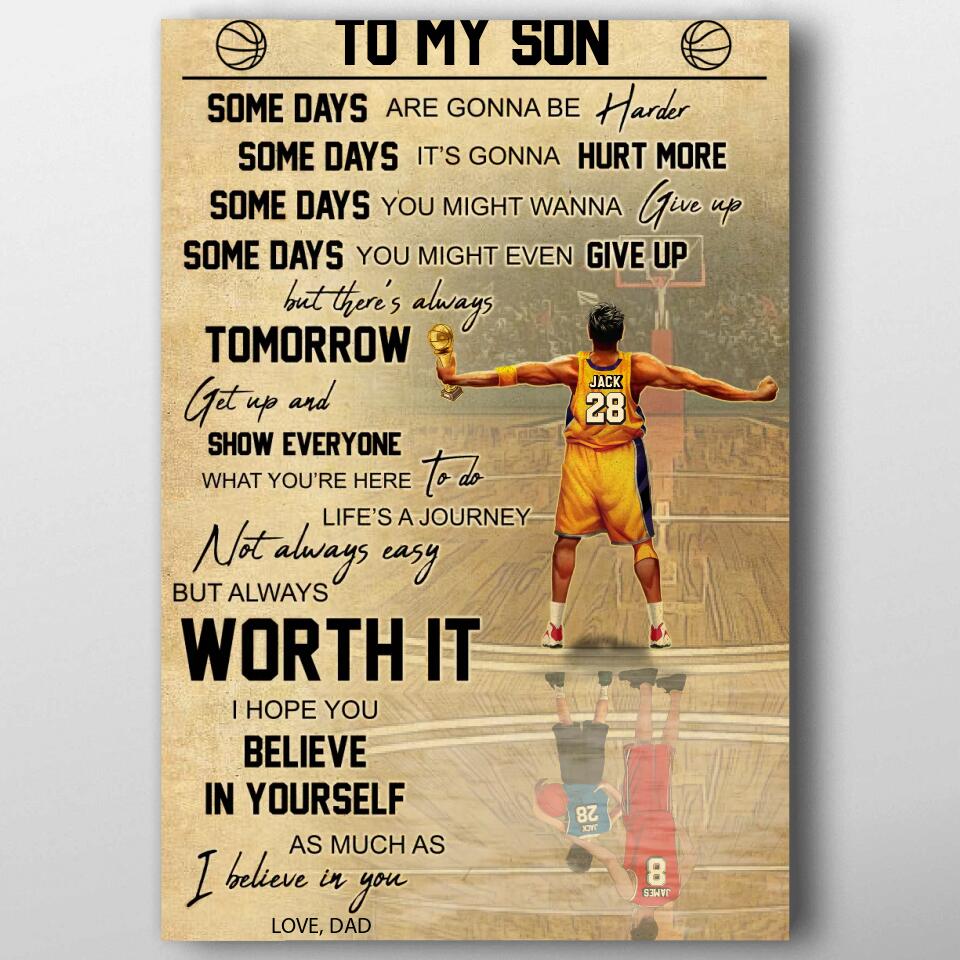 TO MY SON
SOME DAYS ARE GONNA BE Harder
SOME DAYS IT'S GONNA HURT MORE
SOME DAYS YOU MIGHT WANNA Give up
SOME DAYS YOU MIGHT EVEN GIVE UP
but there's always
TOMORROW
Get up and
SHOW EVERYONE
WHAT YOU'RE HERE To do
LIFE'S A JOURNEY
Not always easy
BUT ALWAYS
WORTH IT
I HOPE YOU
BELIEVE
IN YOURSELF
AS MUCH AS
I believe in you
LOVE, DAD
JACK
28
28
JACK
8
JAMES